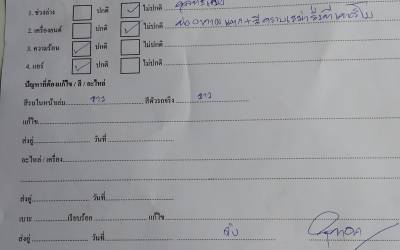 1. ช่วงล่าง ปกติ ✓ ไม่ปกติ
2. เครื่องยนต์ ✓ ปกติ ไม่ปกติ
3. ความร้อน ✓ ปกติ ไม่ปกติ
4. แอร์ ✓ ปกติ ไม่ปกติ
ปัญหาที่ต้องแก้ไข / สี / อะไหล่
สีรถในหน้าเล่ม ขาว สีตัวรถจริง ขาว
แก้ไข
ส่งอู่ วันที่
อะไหล่ / เครื่อง
ส่งอู่ วันที่
เบาะ เรียบร้อย แก้ไข
ส่งอู่ วันที่